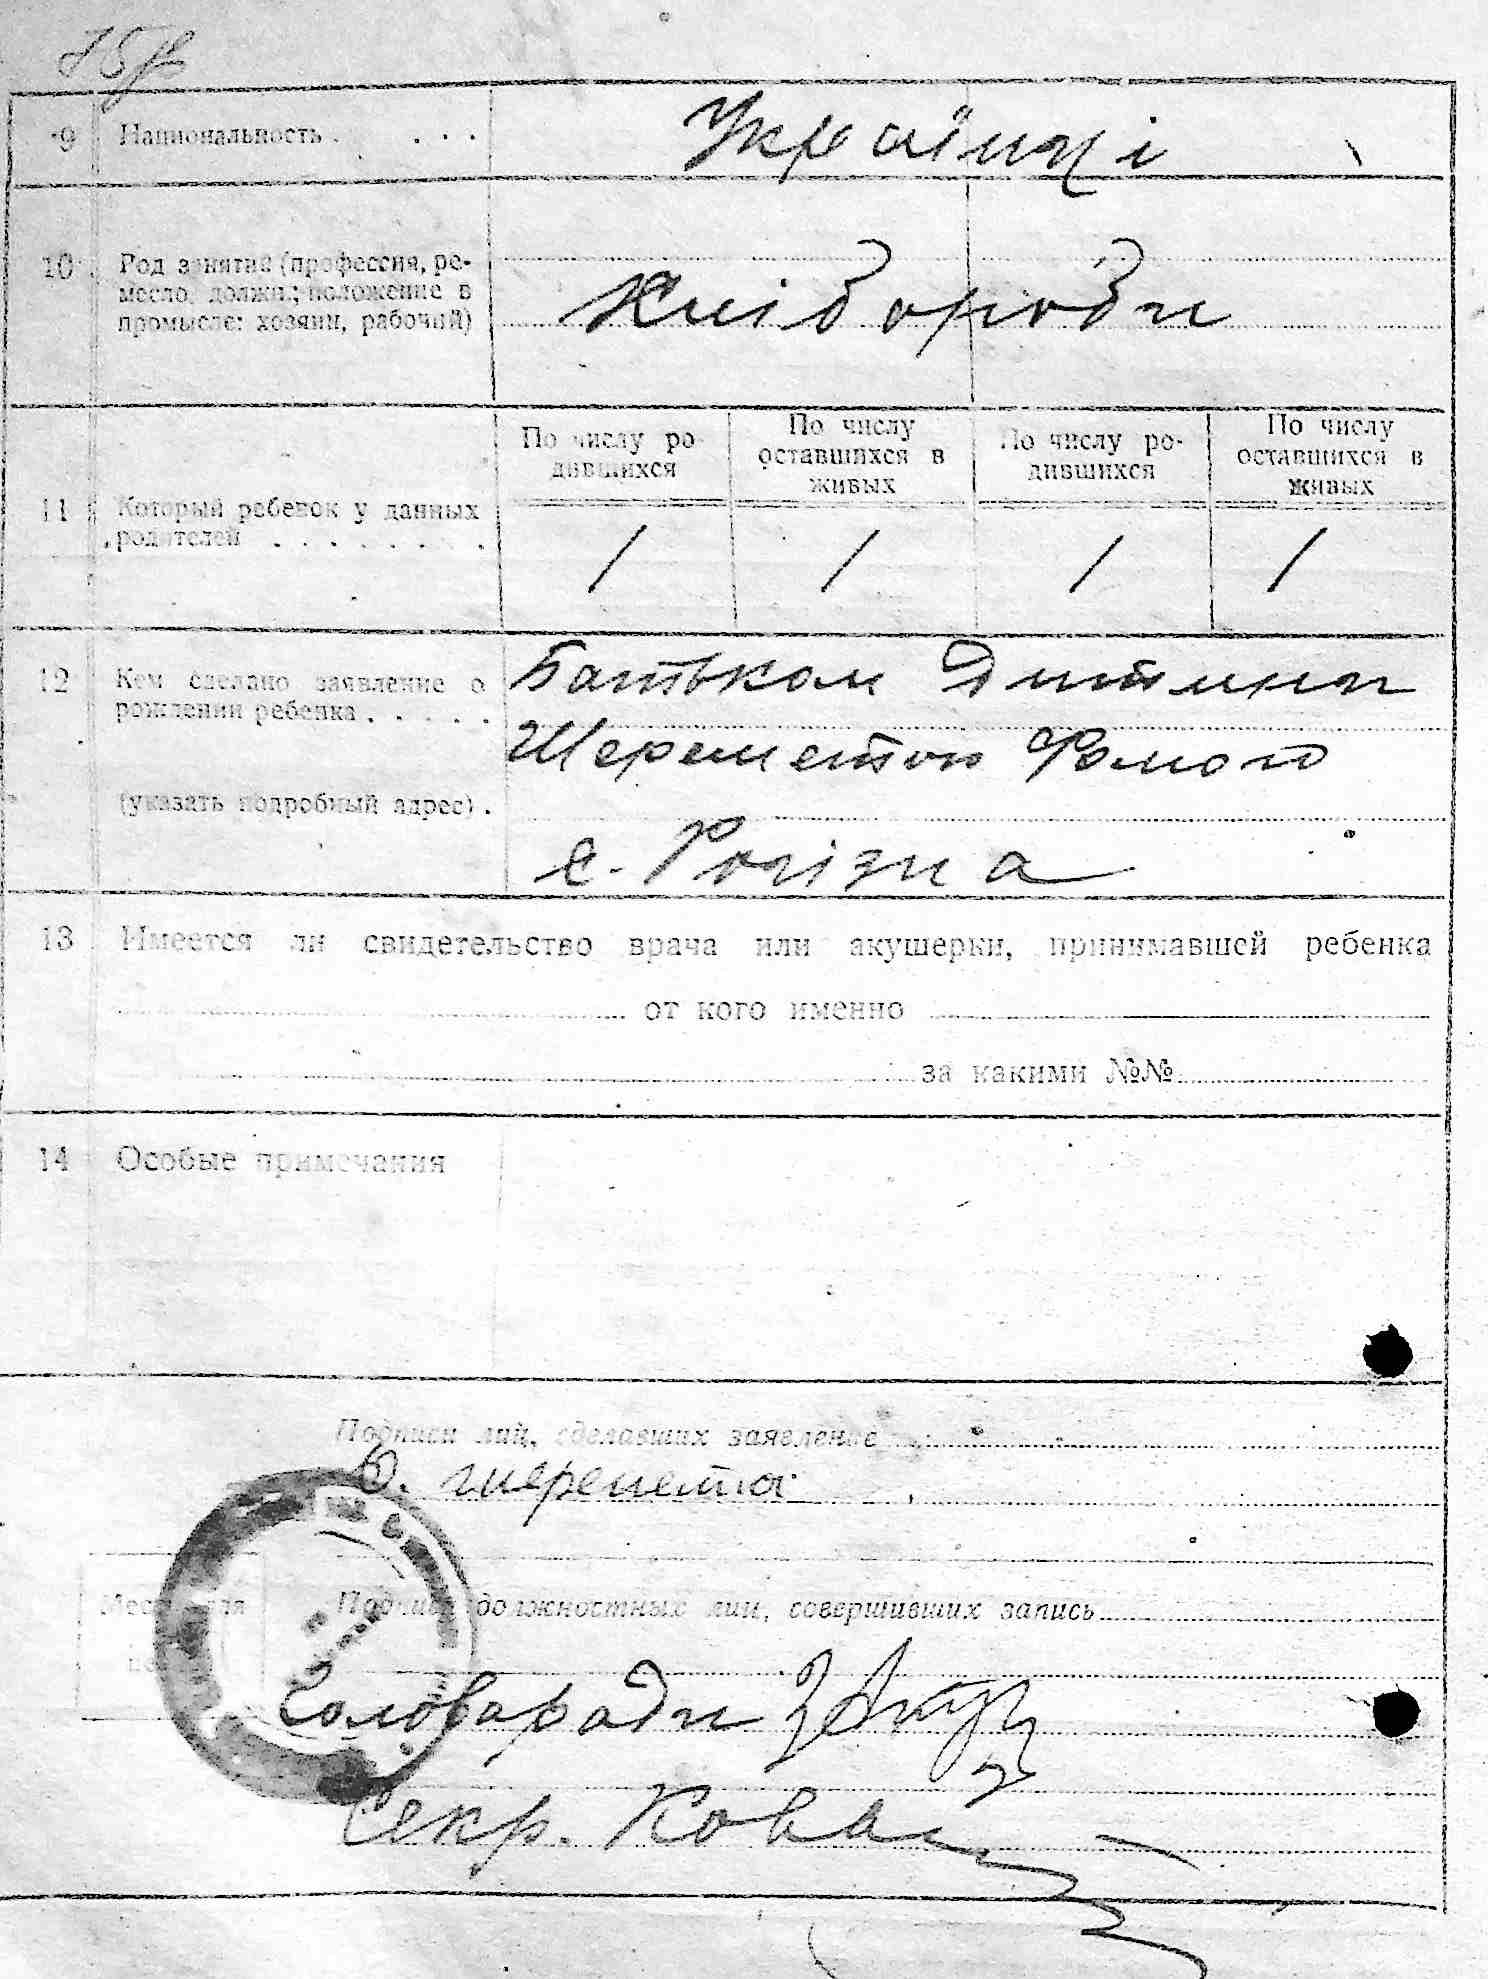 9 Национальность . . . . Українці
10 Род занятия (профессия, ре-
месло, должн.; положение в
промысле: хозяин, рабочий)
Хлібороби
По числу ро-
дившихся
По числу
оставшихся в
живых
По числу ро-
дившихся
По числу
оставшихся в
живых
11 Который ребенок у данных
родителей . . . . . . . .
1 1 1 1
12 Кем сделано заявление о
рождении ребенка . . . . .
(указать подробный адрес) .
Батьком Дитини
Шереметом Фомою
с. Рогізна
13 Имеется ли свидетельство врача или акушерки, принимавшей ребенка
от кого именно
за какими №№
14 Особые примечания
Подписи лиц, сделавших заявление
шеремета
Место для
Подписи должностных лиц, совершивших запись
Голова ради
Секр.